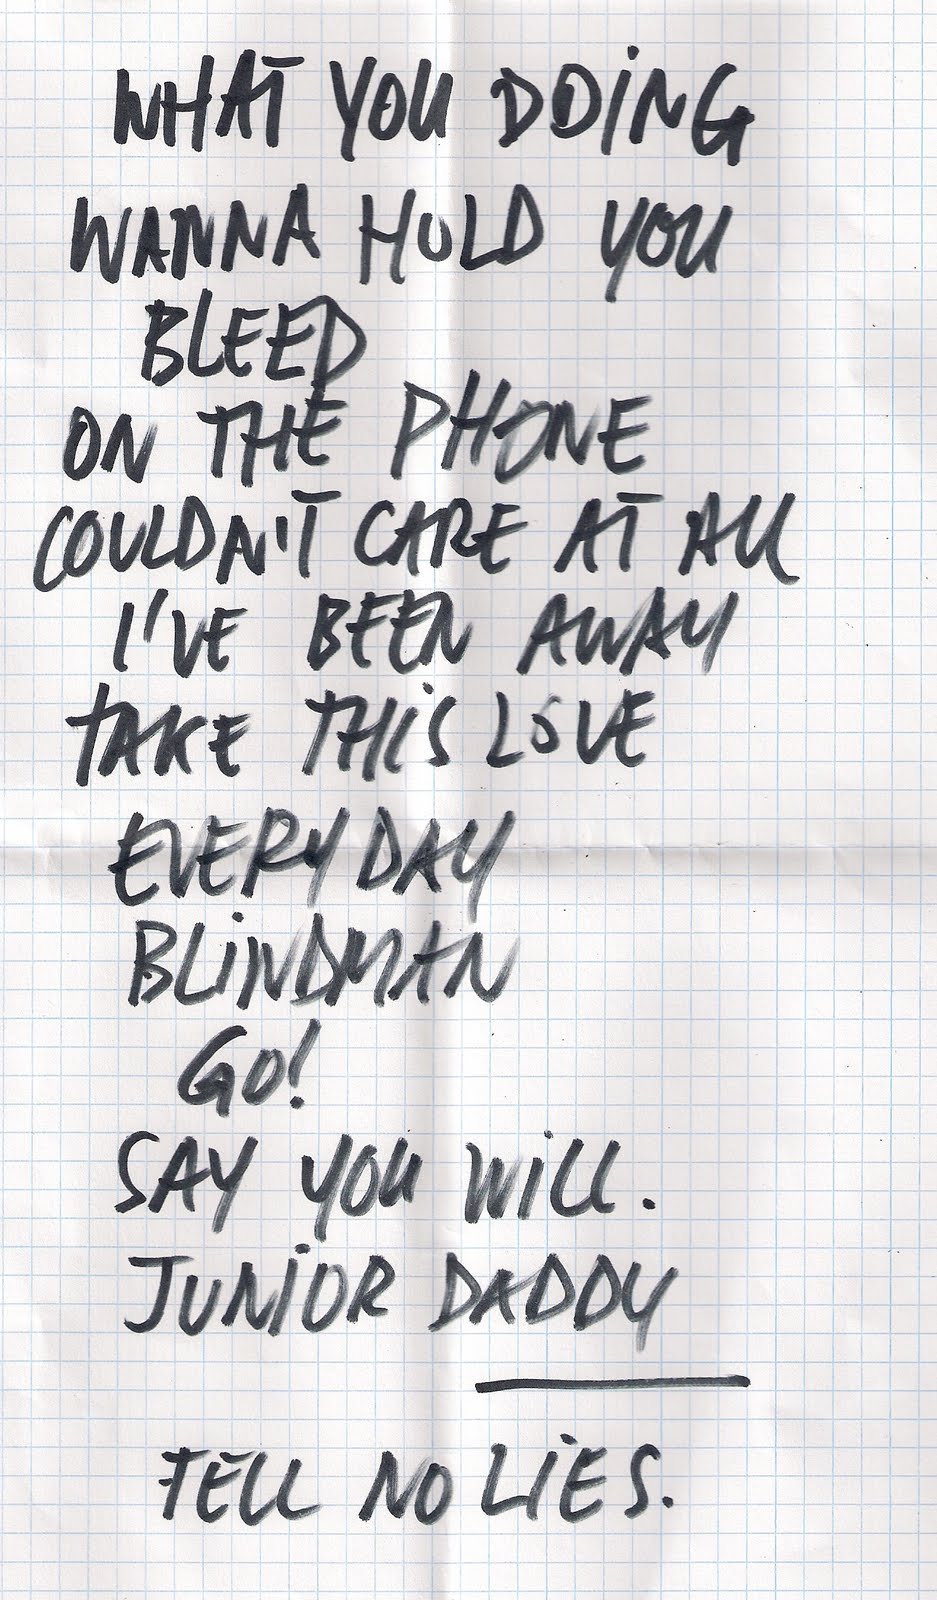 WHAT YOU DOING
WANNA HOLD YOU
BLEED
ON THE PHONE
COULDN'T CARE AT ALL
I'VE BEEN AWAY
TAKE THIS LOVE
EVERYDAY
BLINDMAN
GO!
SAY YOU WILL.
JUNIOR DADDY
TELL NO LIES.